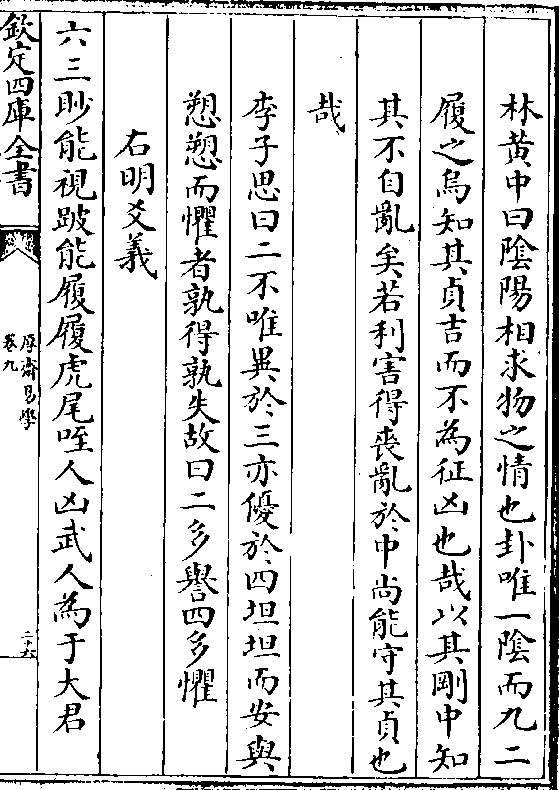 林黄中曰陰陽相求物之情也卦唯一陰而九二
履之烏知其貞吉而不為征凶也哉以其剛中知
其不自亂矣若利害得喪亂於中尚能守其貞也
哉
李子思曰二不唯異於三亦優於四坦坦而安與
愬愬而懼者孰得孰失故曰二多譽四多懼
右明爻義
六三眇能視跛能履履虎尾咥人凶武人為于大君
欽定四庫全書
厚齋易學
卷九
二十六